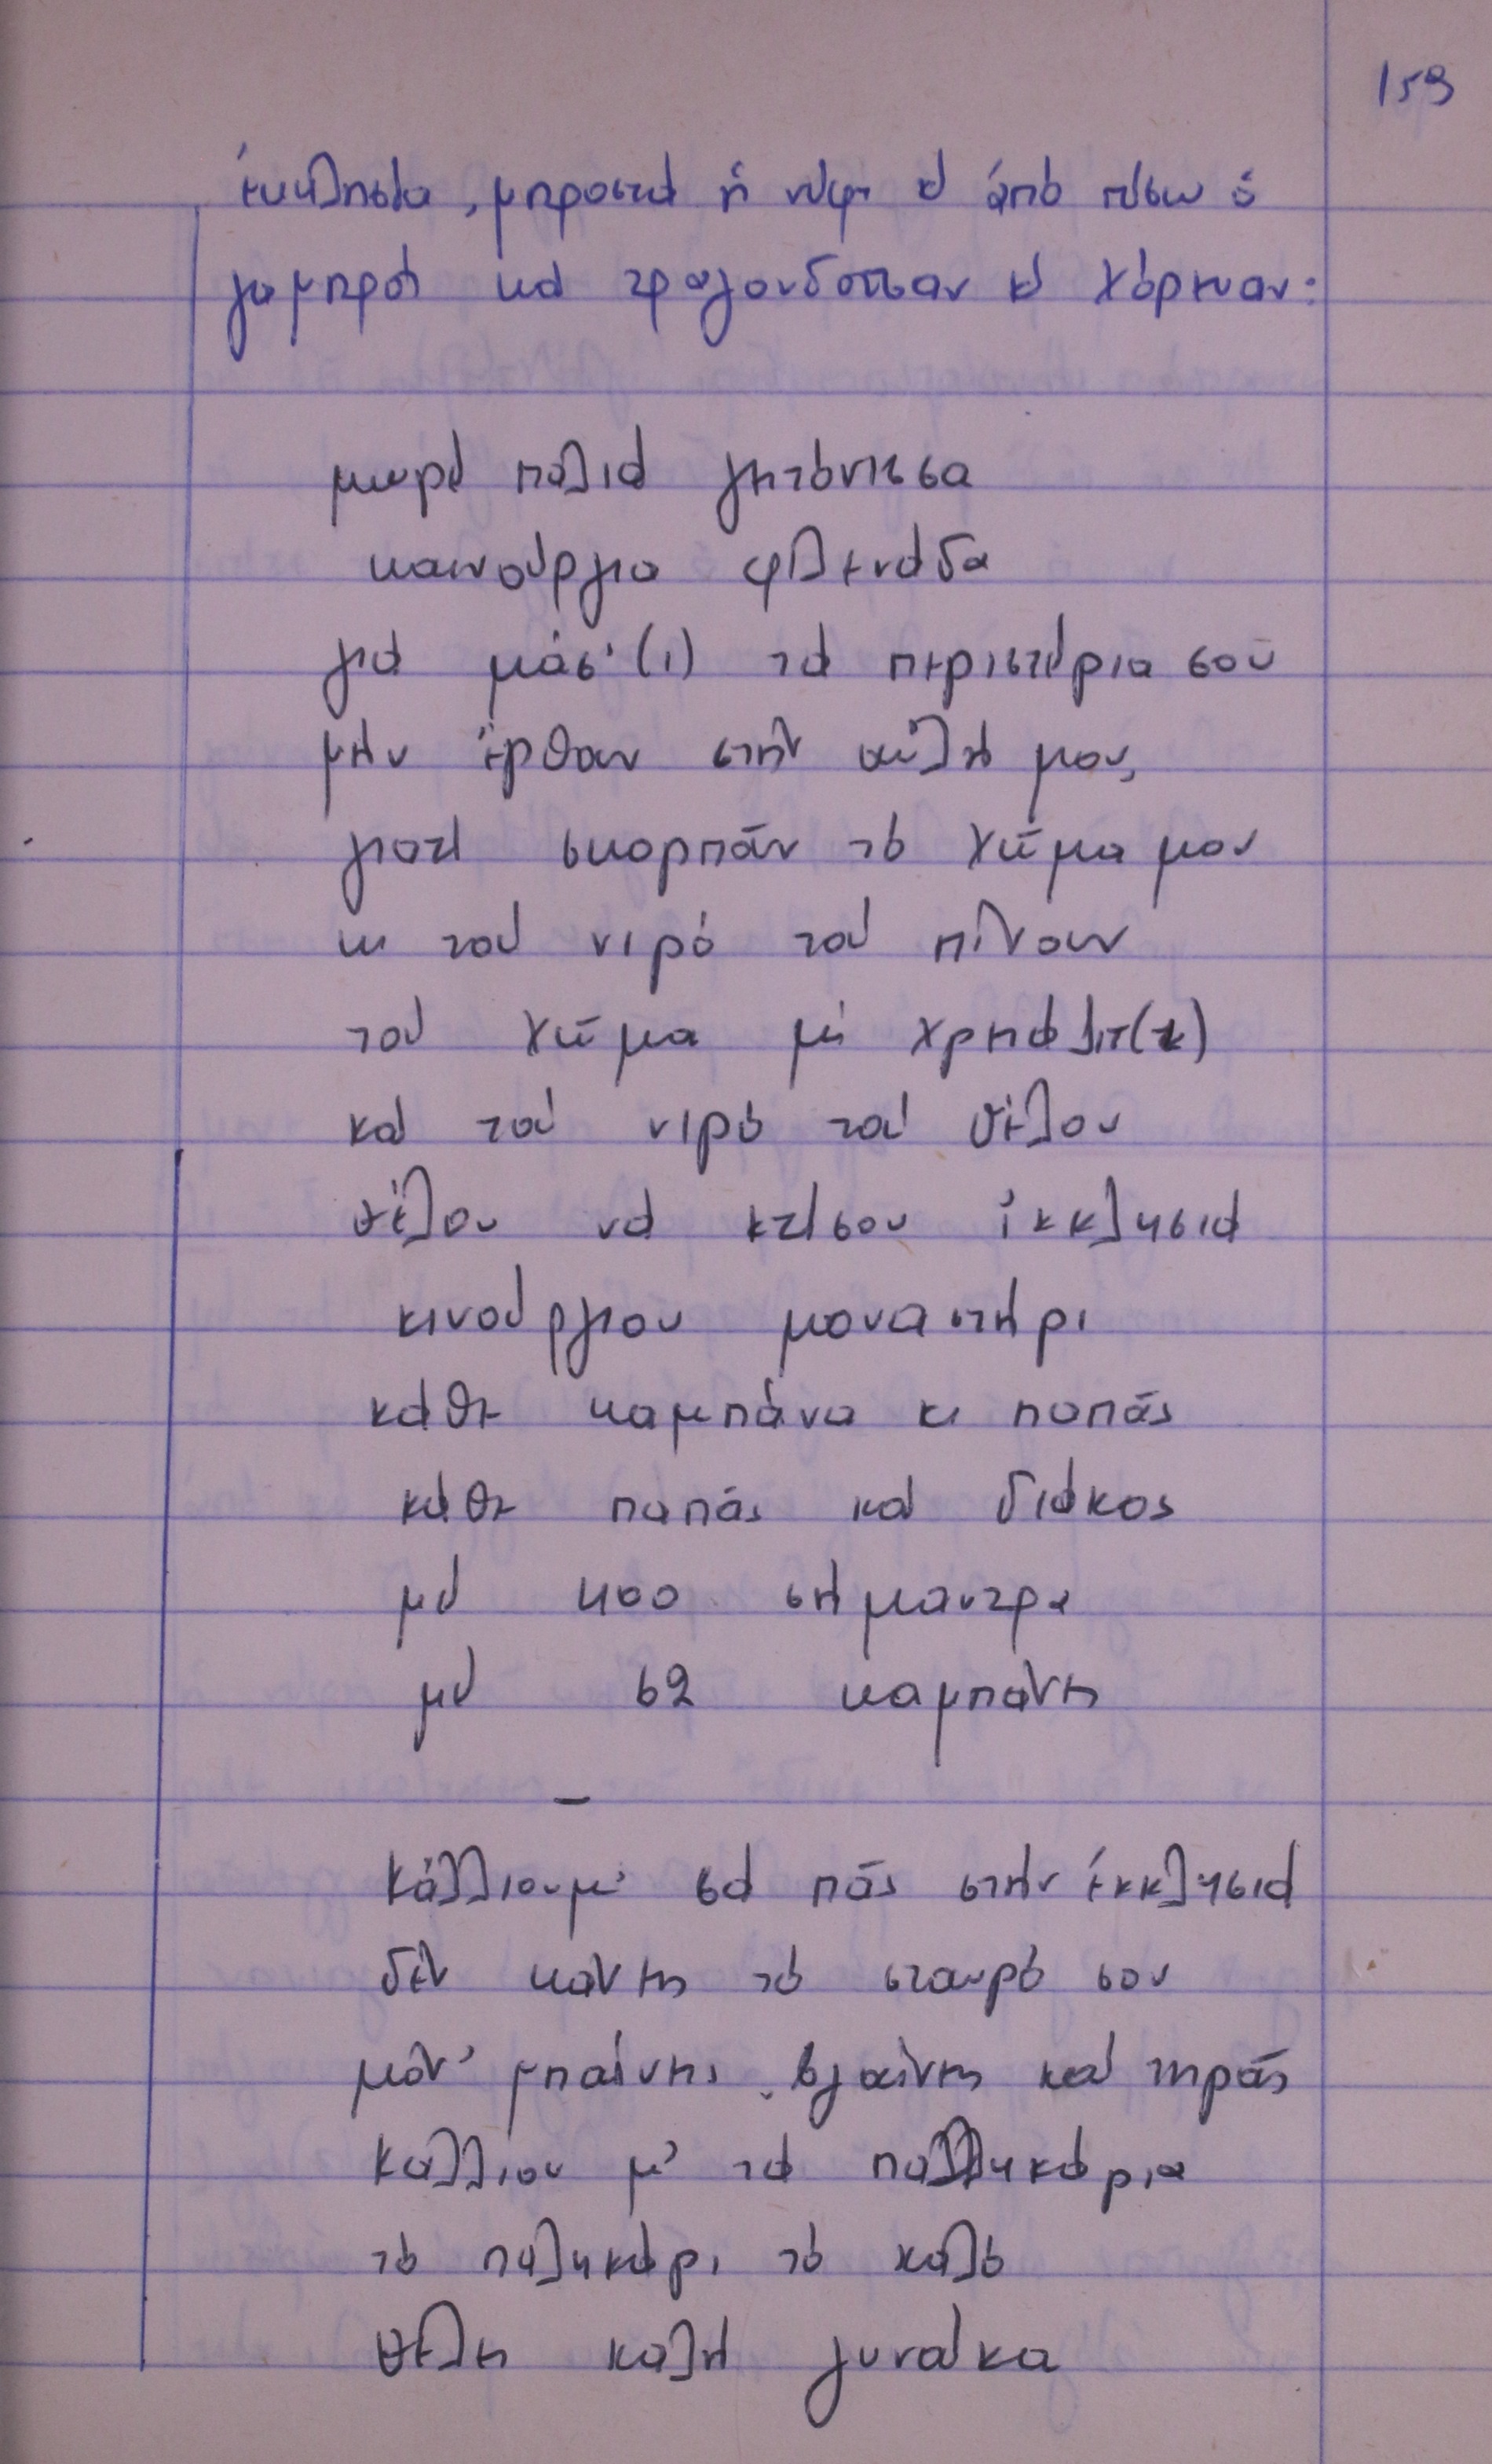 159
ἐκκλησία, μπροστά ἡ νύφη κι ἀπό πίσω ὁ
γαμπρός καί τραγουδούσαν κί χόρευαν:
μωρέ παλιά γειτόνισσα
καινούργια φιλενάδα
γιά μάσ' (ι) τά περιστέρια σου
μήν ἔρθουν στήν αὐλή μου,
γιατί σκορπᾶν τό χῶμα μου
κι τού νιρό τού πίνουν
τού χῶμα μέ χρειάζιτ(ε)
καί τού νιρό τού θέλου
θέλου νά κτίσου ἰκκλησιά
κινούργιου μοναστήρι
κάθε καμπάνα κι παπάς
κάθε παπάς καί διάκος
μέ 400 σήμαντρα
μέ 62 καμπάνες
—
Κάλλιουμ' σά πᾶς στήν ἐκκλησιά
δέν κάνεις τό σταυρό σου
μόν' μπαίνεις βγαίνεις καί τηρᾶς
Κάλλιου μ' τά παλληκάρια
τό παληκάρι τό καλό
θέλει καλή γυναίκα